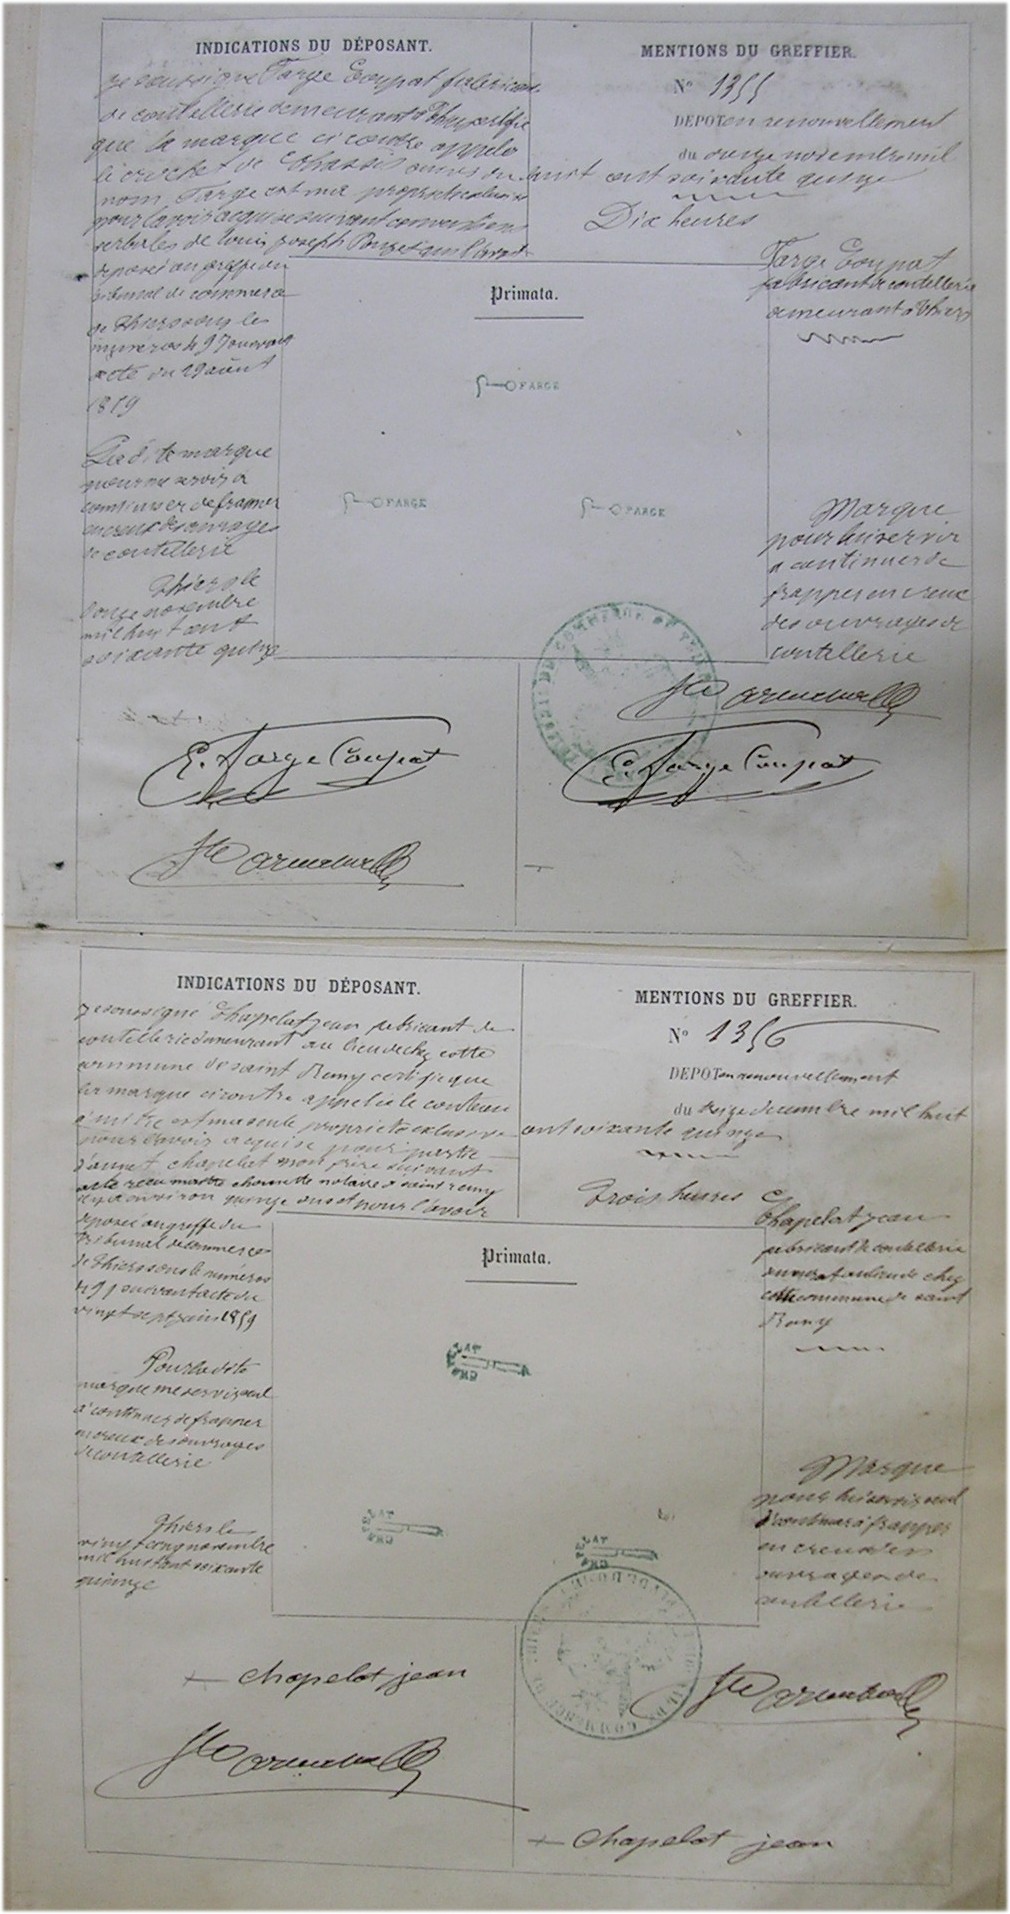 INDICATIONS DU DÉPOSANT.
je soussigné Farge Coupat fabricant
de coutellerie demeurant à Thiers certifie
que la marque ci contre appelée
le crochet de Chassis suivis du
nom Farge est ma propriété exclusive
pour l'avoir acquise suivant conventions
verbales de Louis Joseph qui l'avait
déposé au greffe du
tribunal de commerce
de Thiers sous le
numéros
acte du 29 août
1859
La dite marque
pour me servir à
continuer de frapper
en creux des ouvrages
de coutellerie
Thiers le
onze novembre
mil huit cent
soixante quinze
E. Farge Coupat
MENTIONS DU GREFFIER.
N° 1355
DEPOT en renouvellement
du onze novembre mil
huit cent soixante quinze
Dix heures
Farge Coupat
fabricant de coutellerie
demeurant à Thiers
Primata.
FARGE
FARGE
FARGE
Marque
pour lui servir
à continuer de
frapper en creux
des ouvrages de
coutellerie
E. Farge Coupat
INDICATIONS DU DÉPOSANT.
je soussigné Chapelat jean fabricant de
coutellerie demeurant au lieu de chez cotte
commune de saint Remy certifie que
la marque ci contre appelée le couteau
à mitre est ma seule propriété exclusive
pour l'avoir acquise pour partie
d'annet chapelat mon frère suivant
acte reçu maitre notaire à saint remy
il y a environ quinze ans et pour l'avoir
déposé au greffe du
tribunal de commerce
de Thiers sous le numéros
suivant acte du
vingt sept juin 1859
Pour la dite
marque me servir seul
à continuer de frapper
en creux des ouvrages
de coutellerie
Thiers le
vingt cinq novembre
mil huit cent soixante
quinze
chapelat jean
MENTIONS DU GREFFIER.
N° 1356
DEPOT en renouvellement
du decembre mil huit
cent soixante quinze
Trois heures
Chapelat jean
fabricant de coutellerie
demeurant au lieu de chez
cotte commune de saint
Remy
Primata.
Marque
pour lui servir seul
à continuer à frapper
en creux des
ouvrages de
coutellerie
chapelat jean